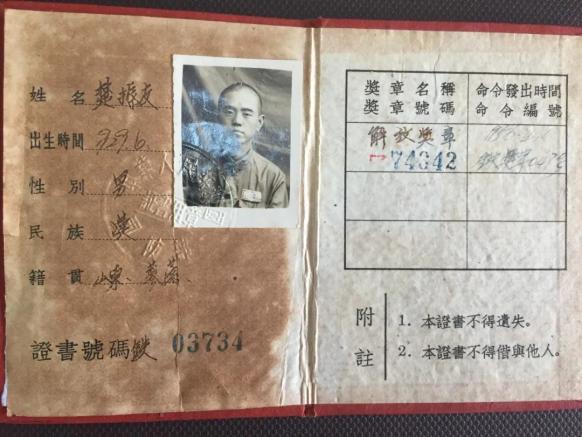 姓名 楚振友
出生時間 1929.6.
性別 男
民族 漢
籍貫 山東、蓬萊
證書號碼 鉄 03734
獎章名稱
獎章號碼
命令發出時間
命令編號
解放獎章
74342
附註
1. 本證書不得遺失。
2. 本證書不得借與他人。